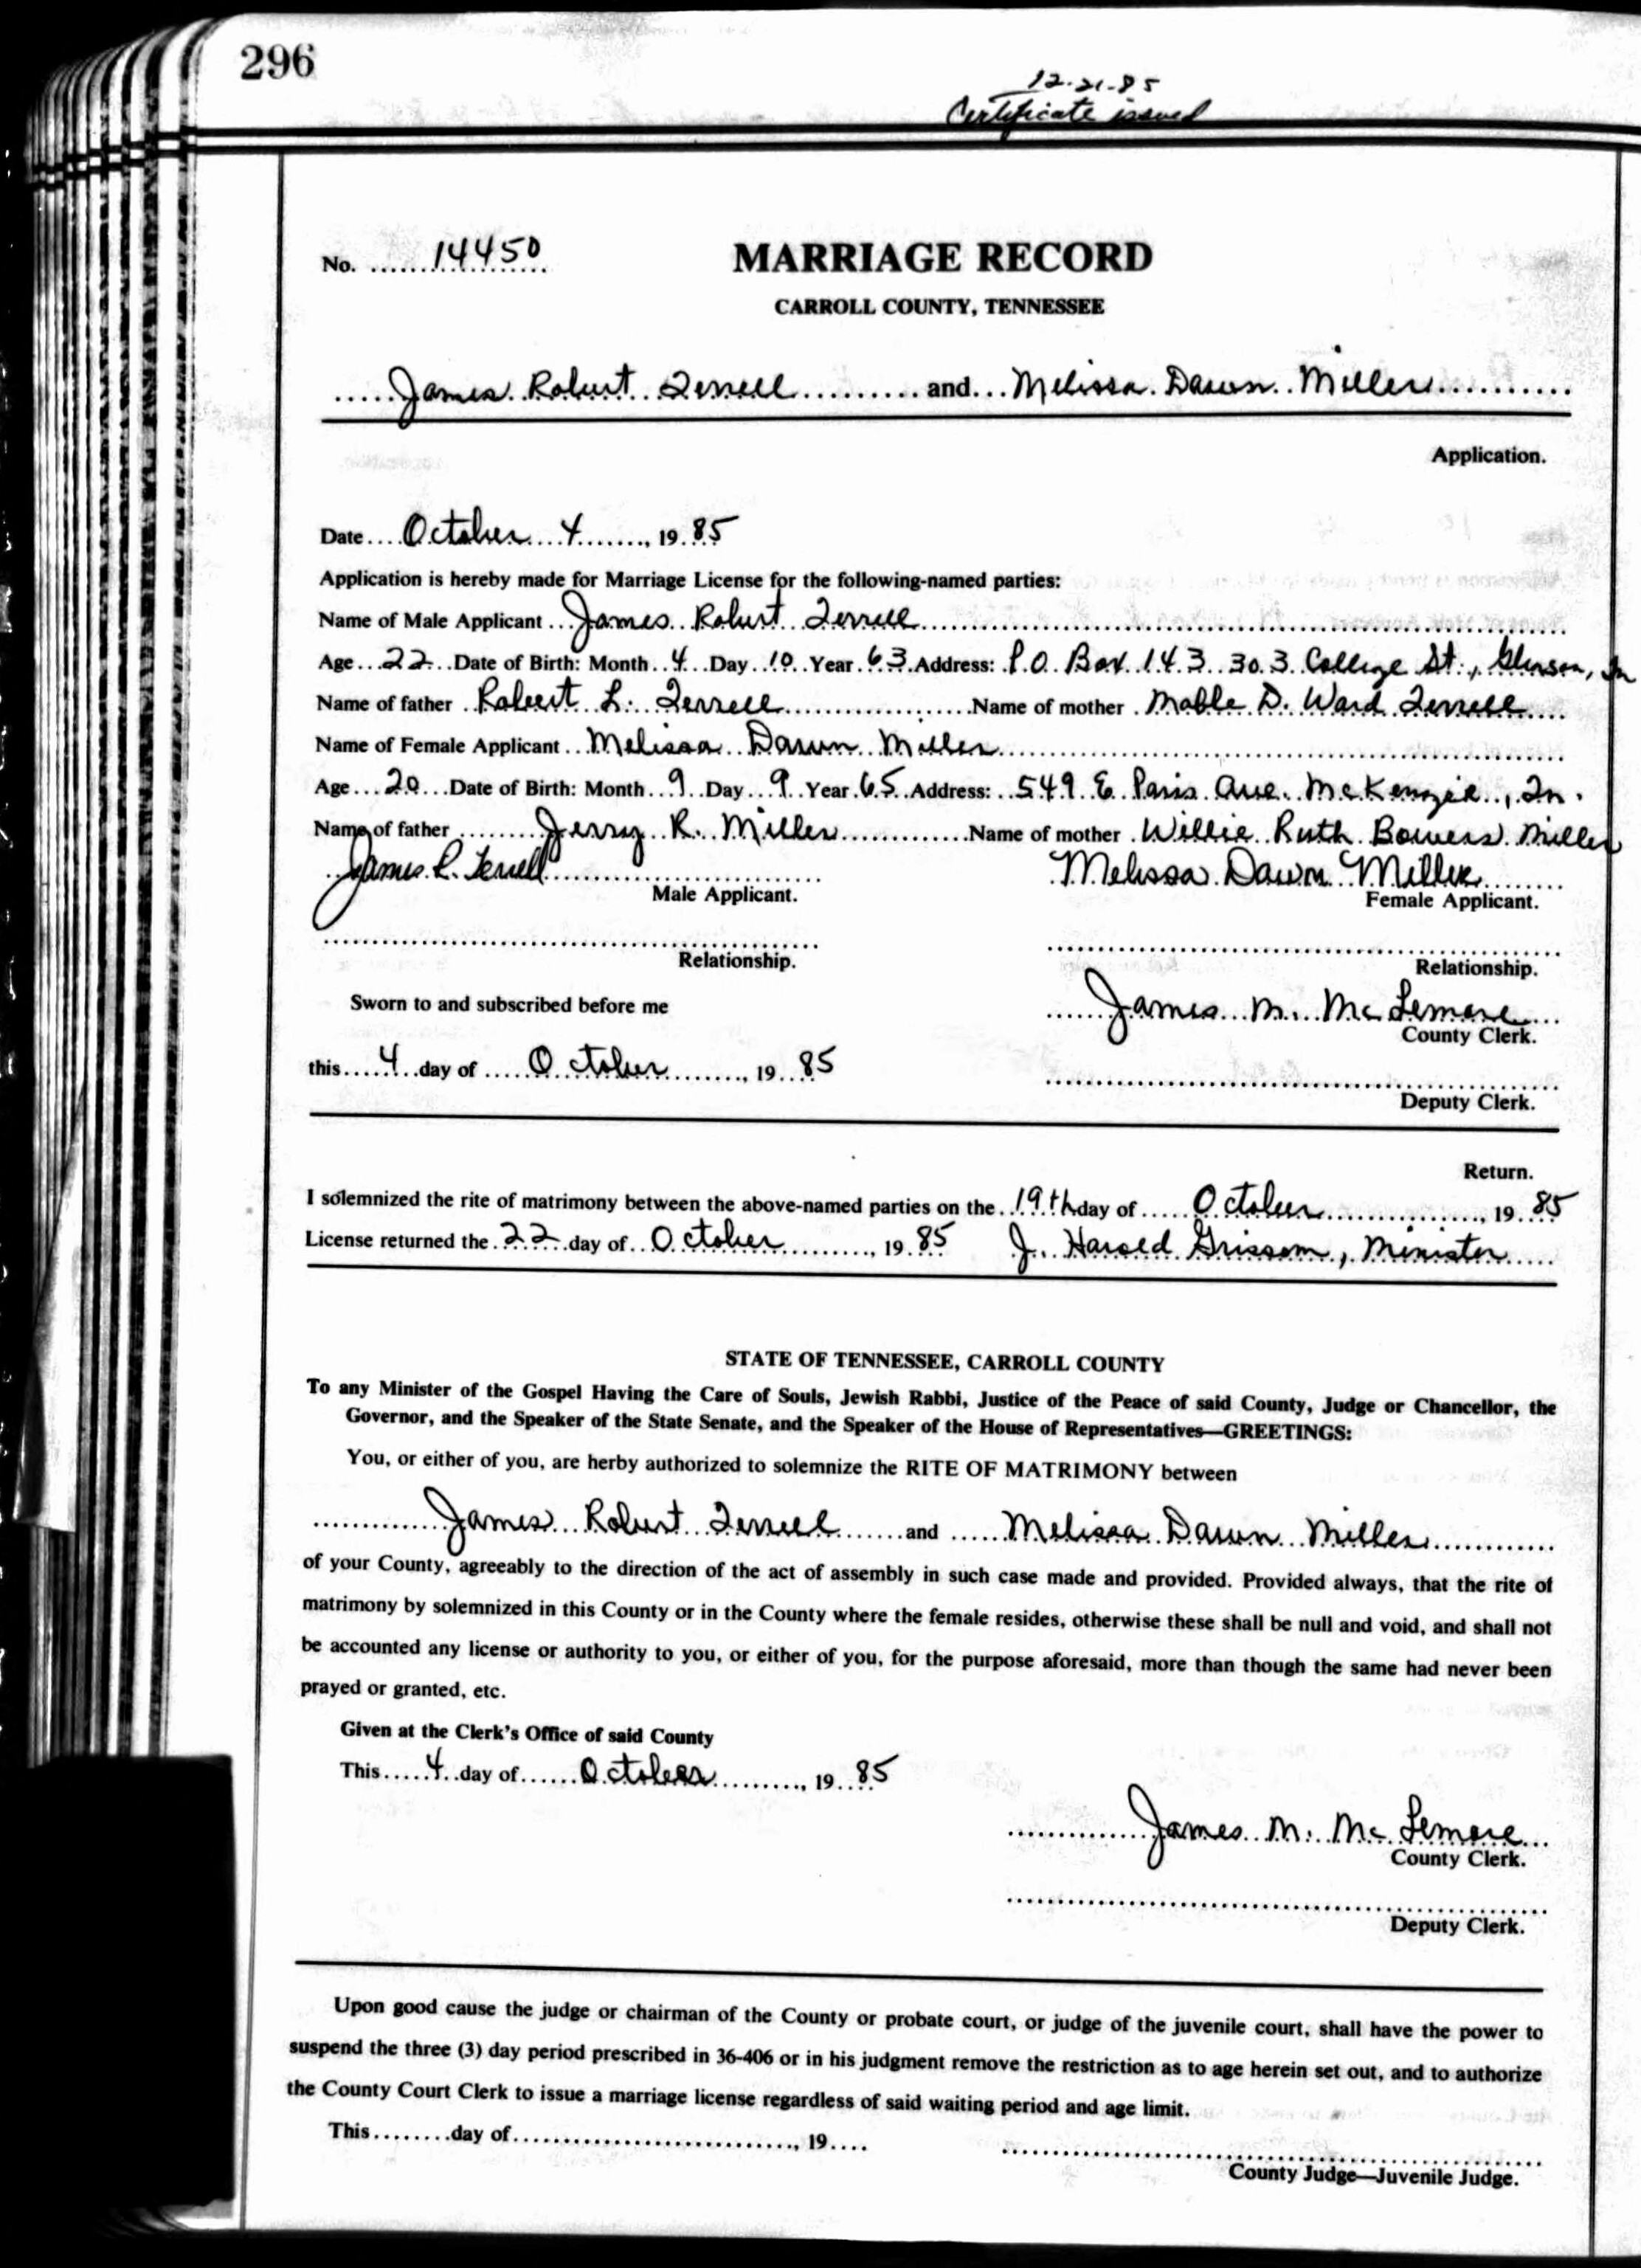 296
12-21-85
Certificate issued
No. 14450
MARRIAGE RECORD
CARROLL COUNTY, TENNESSEE
James Robert Terrell and Melissa Dawn Miller
Application.
Date October 4, 1985
Application is hereby made for Marriage License for the following-named parties:
Name of Male Applicant James Robert Terrell
Age 22 Date of Birth: Month 4 Day 10 Year 63 Address: P.O. Box 143 303 College St., Gleason, Tn
Name of father Robert L. Terrell Name of mother Mable D. Ward Terrell
Name of Female Applicant Melissa Dawn Miller
Age 20 Date of Birth: Month 9 Day 9 Year 65 Address: 549 E Paris Ave. McKenzie, Tn.
Name of father Jerry R. Miller Name of mother Willie Ruth Bowers Miller
James R. Terrell Melissa Dawn Miller
Male Applicant. Female Applicant.
Relationship. Relationship.
Sworn to and subscribed before me James M. McLemore
County Clerk.
this 4 day of October, 1985
Deputy Clerk.
Return.
I solemnized the rite of matrimony between the above-named parties on the 19th day of October, 1985
License returned the 22 day of October, 1985 J. Harold Grissom, Minister
STATE OF TENNESSEE, CARROLL COUNTY
To any Minister of the Gospel Having the Care of Souls, Jewish Rabbi, Justice of the Peace of said County, Judge or Chancellor, the
Governor, and the Speaker of the State Senate, and the Speaker of the House of Representatives—GREETINGS:
You, or either of you, are herby authorized to solemnize the RITE OF MATRIMONY between
James Robert Terrell and Melissa Dawn Miller
of your County, agreeably to the direction of the act of assembly in such case made and provided. Provided always, that the rite of
matrimony by solemnized in this County or in the County where the female resides, otherwise these shall be null and void, and shall not
be accounted any license or authority to you, or either of you, for the purpose aforesaid, more than though the same had never been
prayed or granted, etc.
Given at the Clerk's Office of said County
This 4 day of October, 1985
James M. McLemore
County Clerk.
Deputy Clerk.
Upon good cause the judge or chairman of the County or probate court, or judge of the juvenile court, shall have the power to
suspend the three (3) day period prescribed in 36-406 or in his judgment remove the restriction as to age herein set out, and to authorize
the County Court Clerk to issue a marriage license regardless of said waiting period and age limit.
This ........ day of ............................, 19....
County Judge—Juvenile Judge.